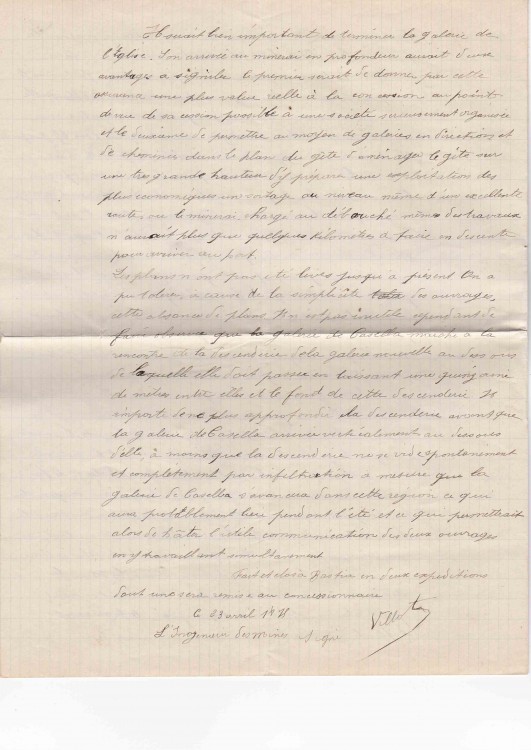 Il serait bien important de terminer la galerie de
l'Eglise. Son arrivée au minerai en profondeur aurait deux
avantages a signaler le premier serait de donner par cette
une plus value réelle à la concession au point
de vue de sa cession possible à une société sérieusement organisée
et le deuxieme de permettre au moyen de galeries en direction et
de cheminées dans le plan du gîte d'aménager le gîte sur
une tres grande hauteur d'y préparer une exploitation des
plus économiques un au niveau même d'un excellente
route, ou le minerai chargé au débouché même des travaux
n'aurait plus que quelques kilomètres a faire en descente
pour arriver au port.
Les plans n'ont pas été levés jusqu'a présent On a
pu tolérer, a cause de la simplicité des ouvrages,
cette absence de plans. Il n'est pas inutile cependant de
faire observer que la galerie de Casella marche à la
rencontre de la descenderie de la galerie nouvelle au dessous
de laquelle elle doit passer en laissant une quinzaine
de mètres entre elles et le fond de cette descenderie Il
importe donc plus approfondir la descenderie avant que
la galerie de Casella arrive verticalement au dessous
d'elle, à moins que la descenderie ne se vide spontanement
et completement par infiltration a mesure que la
galerie de Casella s'avancera dans cette region ce qui
aura probablement lieu pendant l'été et ce qui permettrait
alors de hâter l'utile communication des deux ouvrages
en y travaillant simultanement
Fait et clos à Bastia en deux expeditions
dont une sera remise au concessionnaire
avril
L'Ingenieur des mines Signé